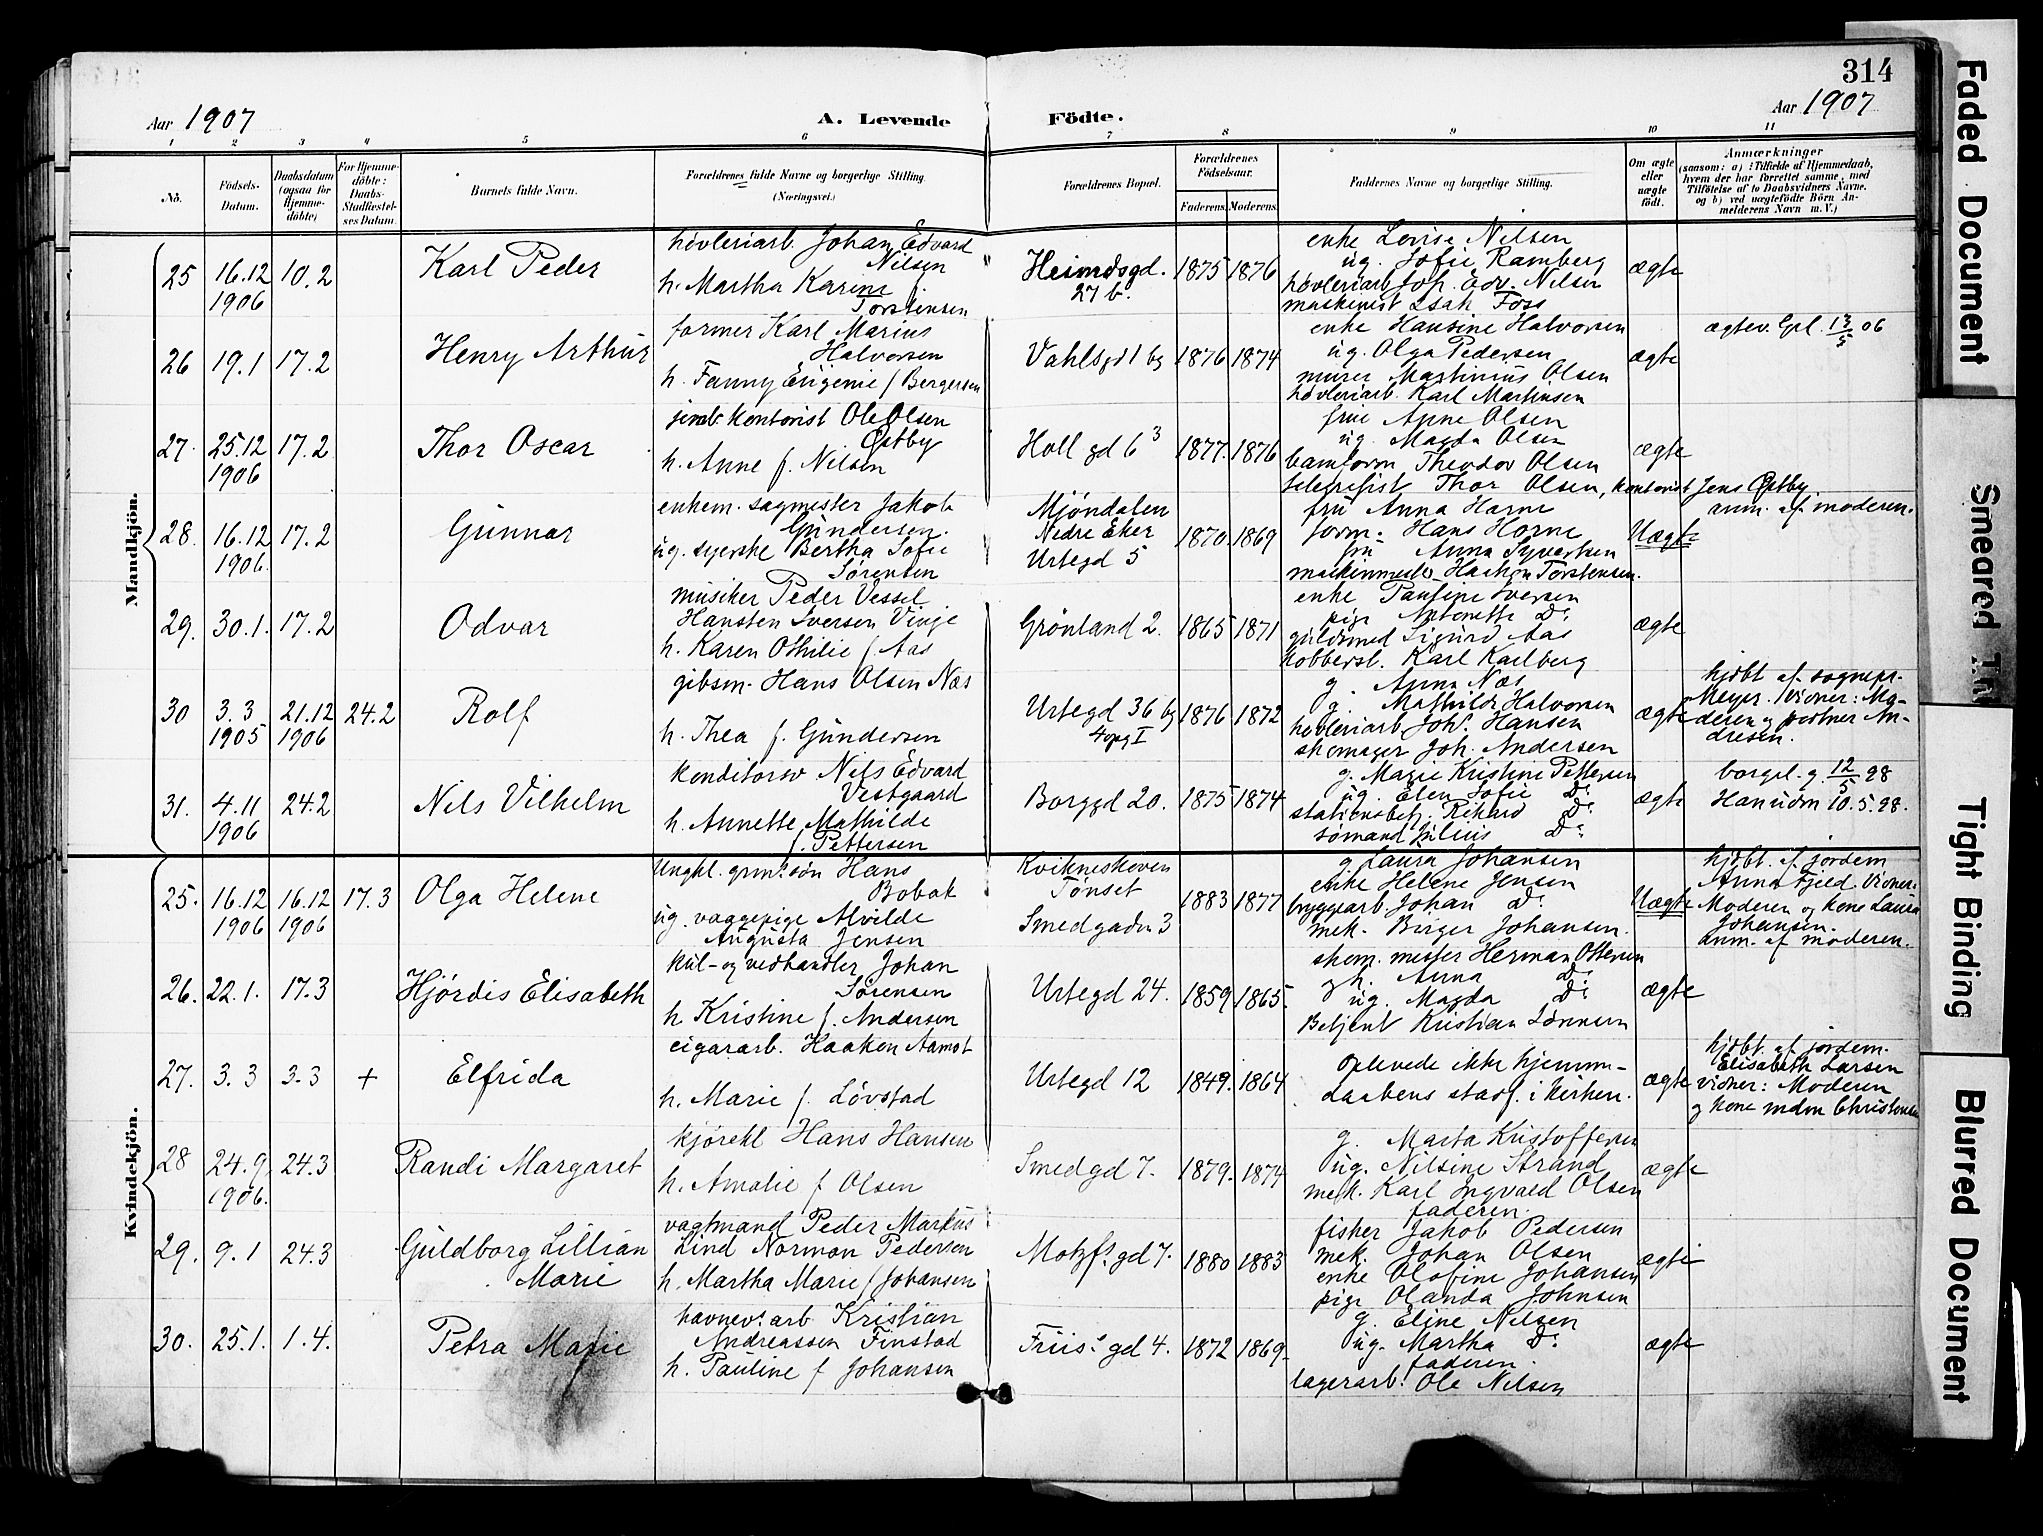 314
Aar 1907
A. Levende Födte.
Aar 1907
1 2 3 4 5 6 7 8 9 10 11
No.
Födsels-Datum.
Daabsdatum (ogsaa for hjemme-döbte)
For Hjemme-döbte: Daabs-Stadfæstel-ses Datum.
Barnets fulde Navn.
Forældrenes fulde Navne og borgerlige Stilling. (Næringsvei.)
Forældrenes Bopæl.
Forældrenes Födselsaar.
Faderens. Moderens.
Faddernes Navne og borgerlige Stilling.
Om ægte eller uægte födt.
Anmærkninger
(saasom: a) i Tilfælde af Hjemmedaab, hvem der har forrettet samme, med Tilföielse af to Daabsvidners Navne, og b) ved uægtefödte Börn An-melderens Navn m. V.)
Mandkjön.
25 16.12 1906 10.2 Karl Peder
høvleriarb. Johan Edvard
Nilsen
h. Martha Karine f.
Torstensen
Heimdsgd. 27 b.
1875 1876
enke Lovise Nilsen
ug. Sofie Ramberg
høvleriarb Joh. Edv. Nilsen
maskinist Isak Foss
ægte
26 19.1 17.2 Henry Arthur
former Karl Marius
Halvorsen
h. Fanny Eugenie f Bergersen
Vahlsgd 1 bg 1876 1874
enke Hansine Halvorsen
ug. Olga Pedersen
murer Martinius Olsen
høvleriarb. Karl Martinsen
ægte
ægtev. Gpl. 13/5 06
27. 25.12 1906 17.2 Thor Oscar
jernb. kontorist Ole Olsen
Østby
h. Anne f. Nilsen
Hollgd 6 3
1877. 1876
frue Anne Olsen
ug. Magda Olsen
banform Theodor Olsen
telegrafist Thor Olsen, kontorist Jens Østby
ægte
28. 16.12 1906. 17.2 Gunnar
enkem. sagmester Jakob
Gundersen.
ug. syerske Bertha Sofie
Sørensen
Mjøndalen
Nedre Eker
Urtegd 5
1870. 1869
fru Anna Horne
form. Hans Horne
fru Anna Syvertsen
maskinmester Haakon Torstensen.
Uægte
anm. af moderen.
29. 30.1. 17.2 Odvar
musiker Peder Vessel
Hansten Iversen Vinje
h. Karen Othilie f. Aas
Grönland 2. 1865 1871
enke Pauline Iversen
pige Antonette Do
guldsmed Sigurd Aas
kobbersl. Karl Karlberg
ægte
30 3.3 1905 21.12 1906 24.2 Rolf
gibsm. Hans Olsen Næs
h. Thea f. Gundersen
Urtegd 36 bg
4 opg I
1876 1872
g. Anna Næs
g. Mathilde Halvorsen
høvleriarb Johs. Hansen
skomager Joh. Andersen
ægte
hjdbt af sognepr.
Meyer. Vidner: Mo-
deren og portner An-
dresen.
31. 4.11 1906 24.2 Nils Vilhelm
konditorsv Nils Edvard
Vestgaard
h. Annette Mathilde
f. Pettersen
Borggd 20. 1875 1874
g. Marie Kristine Pettersen
ug. Elen Sofie Do
stationsbetj. Rikard Do
sømand Julius Do
ægte
borgel. g. 12/5 98
Han udm 10.5.98.
Kvindekjön.
25. 16.12 1906 16.12 1906 17.3 Olga Helene
Ungkl. grml. søn Hans
Bobak
ug. væggepige Alvilde
Augusta Jensen
Kvikneskoven
Tønset
Smedgaden 3
1883 1877
g Laura Johansen
enke Helene Jensen
bryggearb. Johan Do
mek. Birger Johansen.
Uægte
hjdbt. af jordem
Anna Fjeld. Vidner:
Moderen og kone Laura
Johansen.
anm. af moderen.
26. 22.1. 17.3 Hjórdis Elisabeth
kul- og vedhandler Johan
Sörensen
h Kristine f. Andersen
Urtegd 24. 1859 1865.
skom. mester Herman Ottersen
g h. Anna Do
ug. Magda Do
Betjent Kristian Lønnum
ægte
27. 3.3 3.3 + Elfrida
cigararb. Haakon Aamot
h. Marie f. Lövstad
Urtegd 12 1849. 1864
Oplevede ikke hjemme-
daabens stadf. i kirken.
ægte
hjdbt. af jordem.
Elisabeth Larsen
Vidner: Moderen
og kone mdm Christensen
28 24.9 1906. 24.3 Randi Margaret
kjörekl Hans Hansen
h. Amalie f Olsen
Smedgd 7. 1879. 1874
g. Marta Kristoffersen
ug. Nilsine Strand
mek. Karl Ingvald Olsen
faderen.
ægte
29. 9.1 24.3 Guldborg Lillian
Marie
vagtmand Peder Markus
Lind Norman Pedersen
h. Martha Marie f Johansen
Motzfs gd 7. 1880 1883
fisker Jakob Pedersen
mek. Johan Olsen
enke Olafine Johansen
pige Olanda Johnsen
ægte
30. 25.1. 1.4. Petra Marie
havnev. arb Kristian
Andreassen Finstad
h. Pauline f Johansen
Friis' gd 4. 1872 1869.
g. Eline Nilsen
ug. Martha Do
faderen.
lagerarb. Ole Nilsen
ægte
Faded Document
Smeared
Tight Binding
Blurred Document